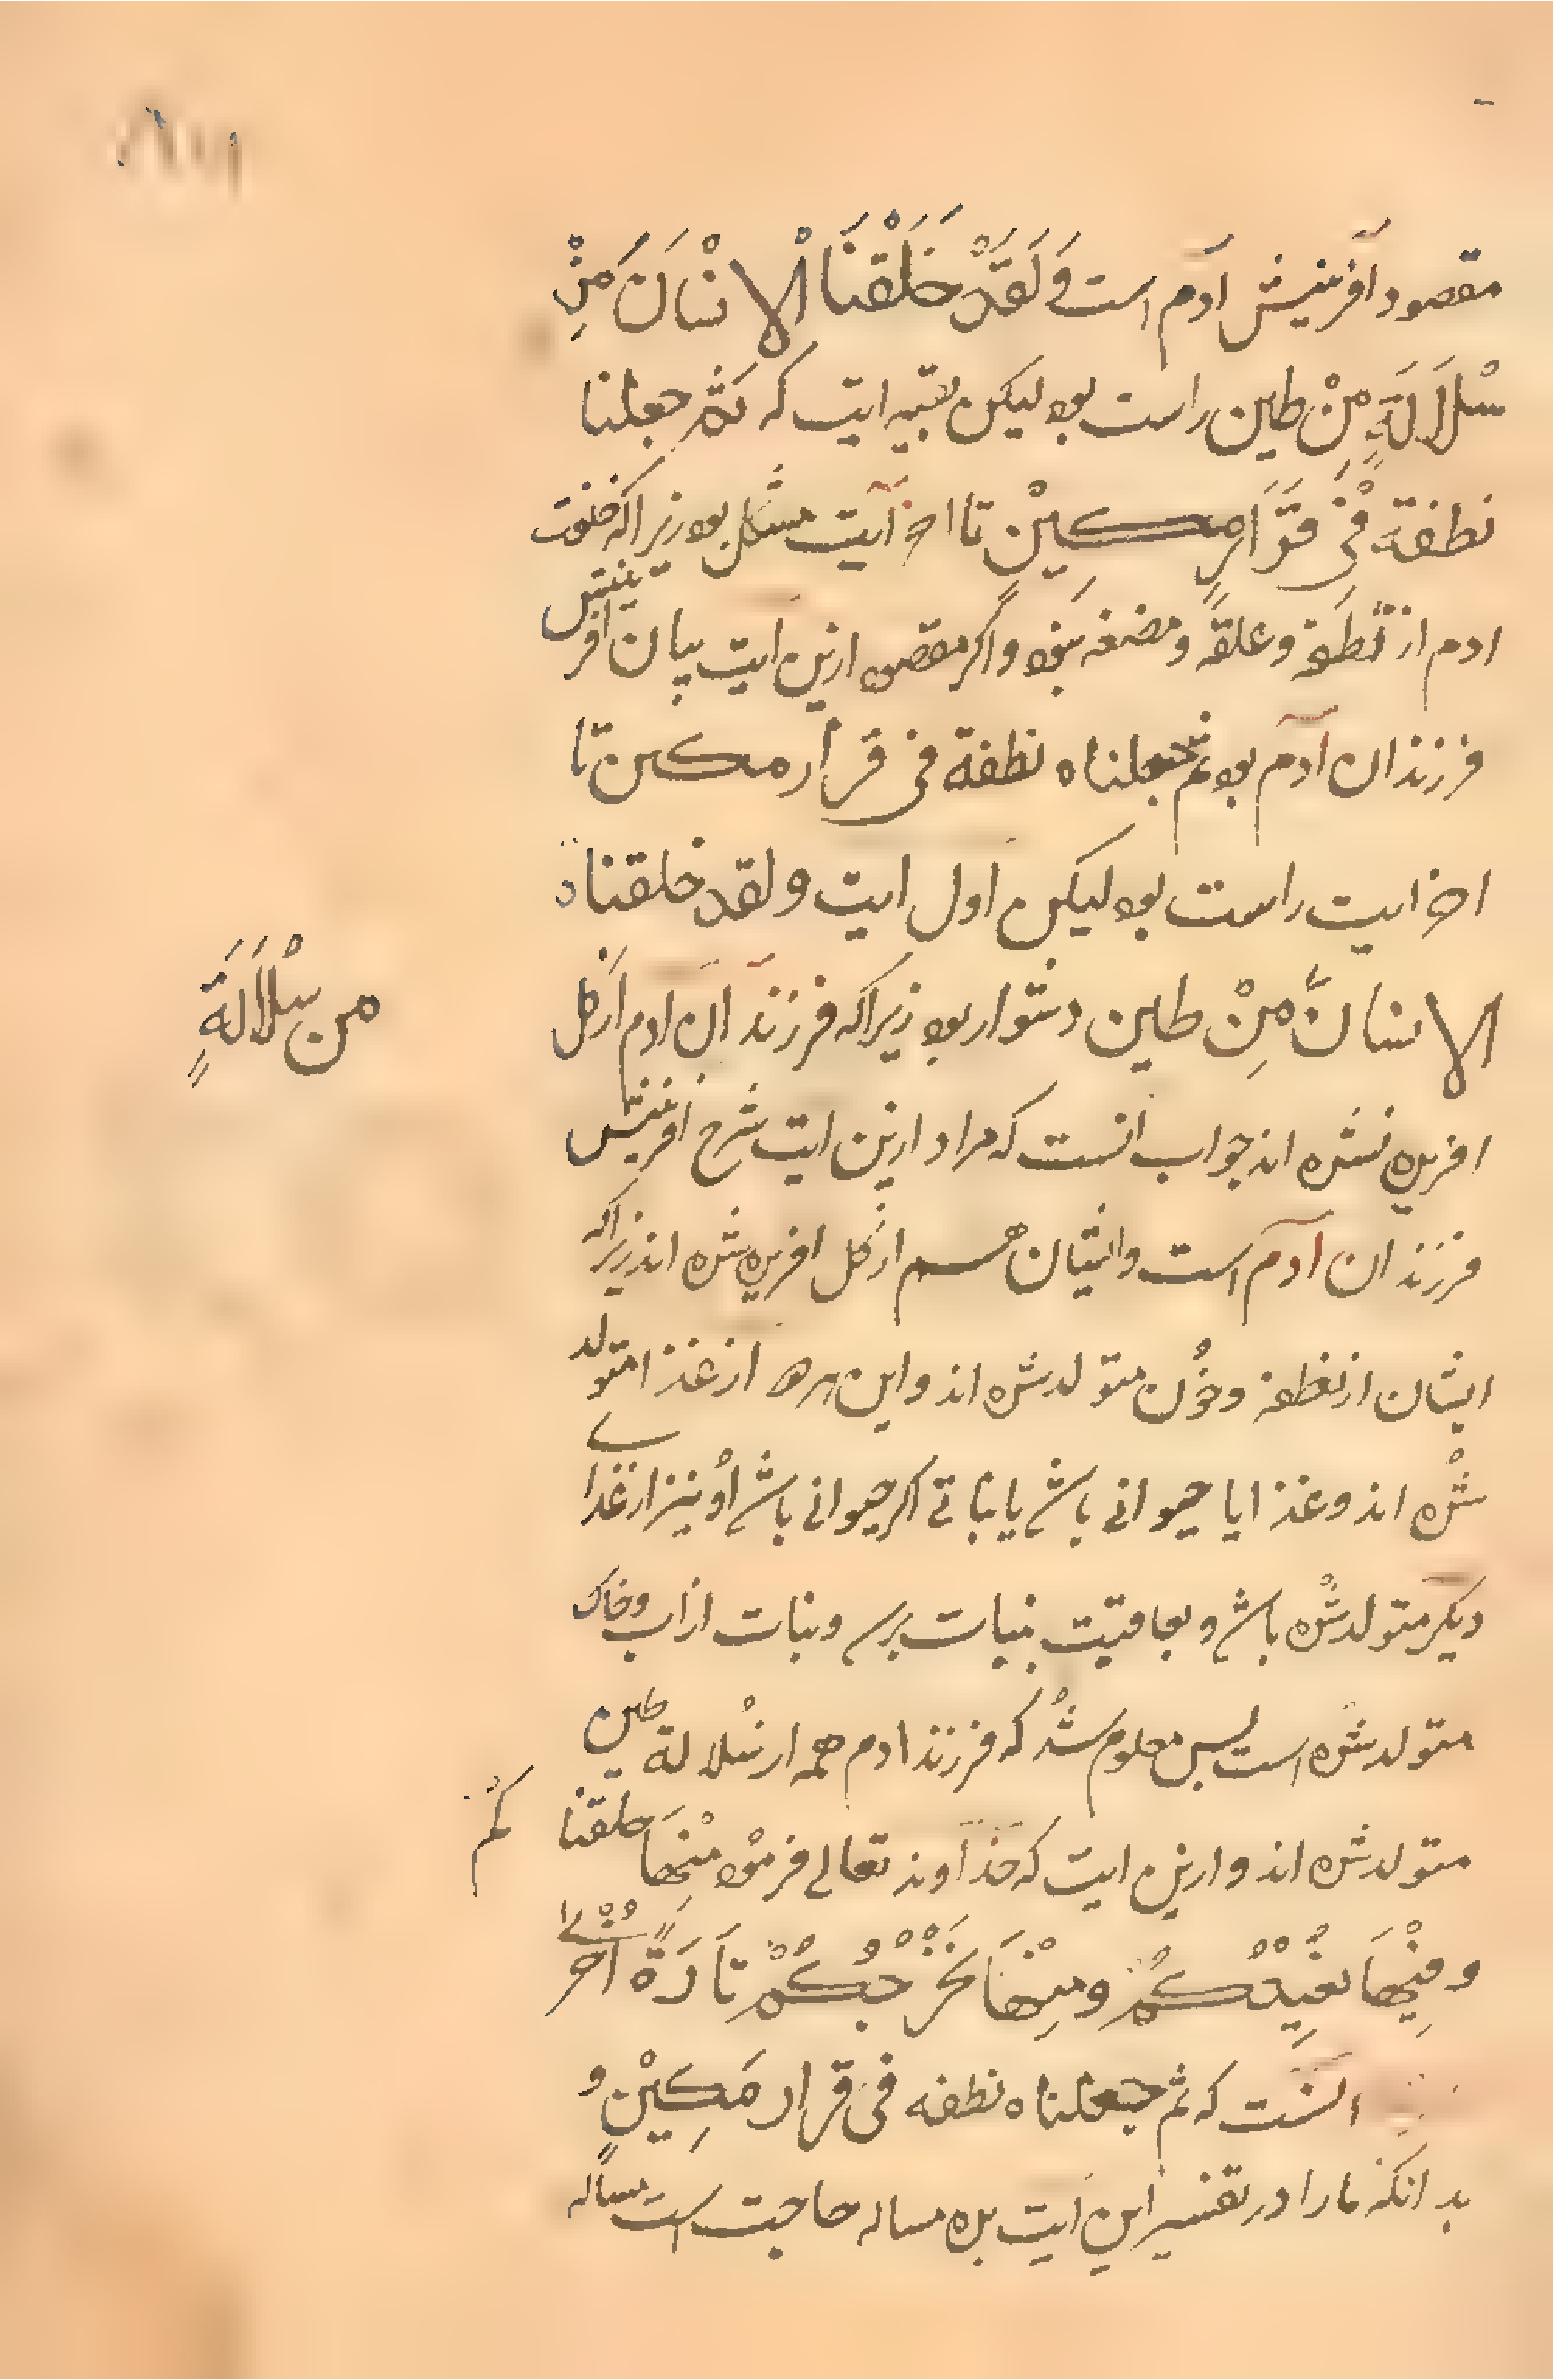 مقصود آفرینش آدم است وَلَقَدْ خَلَقْنَا الْاِنْسَانَ مِنْ
سُلَالَةٍ مِنْ طین راست بود لیکن بقیه ایت که ثم جعلناه
نطفة فِیْ قَرَارٍ مَکِیْنٍ تا اخر آیت مشکل بود زیرا که خلقت
ادم از نطفه و علقه و مضغه نبود و اکر مقصود ازین ایت بیان افرینش
فرزندان آدم بود ثم جعلناه نطفة فی قرار مکین تا
اخر ایت راست بود لیکن اول ایت ولقد خلقنا
الانسانَ مِنْ طین دشوار بود زیرا که فرزندان ادم از کل
من سُلَالَةٍ
افریده نشده اند جواب انست که مراد ازین ایت شرح افرینش
فرزندان آدم است و ایشان هم از کل افریده شده اند زیراکه
ایشان از نطفه و خون متولد شده اند و این هر دو از غذا متولد
شده اند و غذا یا حیوانی باشد یا نباتی اکر حیوانی باشد او نیز از غذای
دیکر متولد شده باشد و بعاقبت بنبات برسد و نبات از اب و خاک
متولد شده است پس معلوم شد که فرزند ادم همه از سلالة طین
متولد شده اند و ازین ایت که خداوند تعالی فرموده مِنْهَا خلقنا کم
و فِیْهَا نُعِیْدُکُمْ و مِنْهَا نُخْرِجُکُمْ تَارَةً اُخْرٰی
انست که ثم جعلناه نطفه فی قرار مَکِیْنٍ و
بدانکه ما را در تفسیر این ایت بده مساله حاجت است مساله